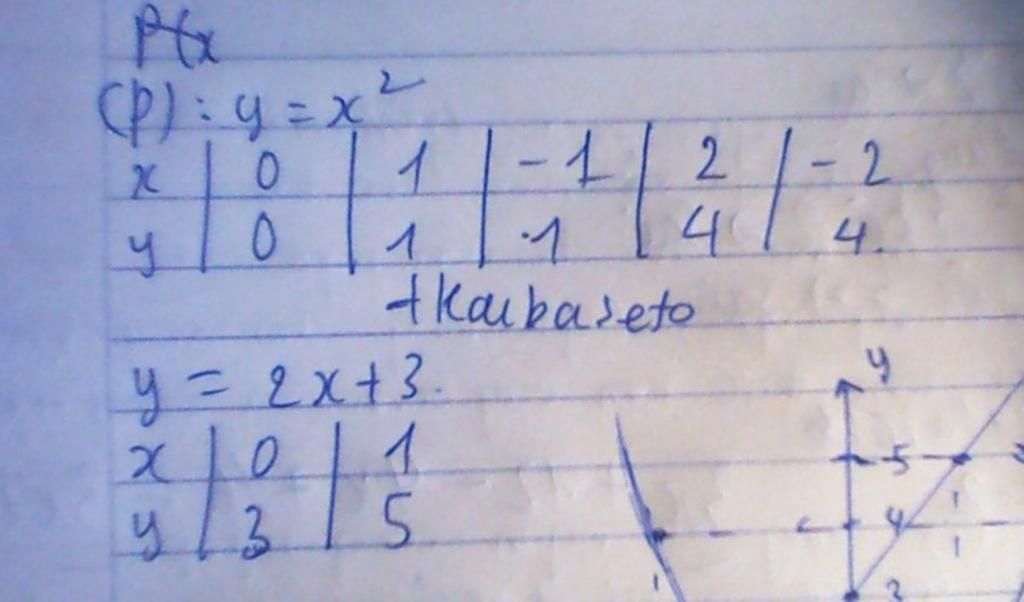 (P) : y = x²
x | 0 | 1 | -1 | 2 | -2
y | 0 | 1 | 1 | 4 | 4.
y = 2x+3.
x | 0 | 1
y | 3 | 5
y
5
4
3